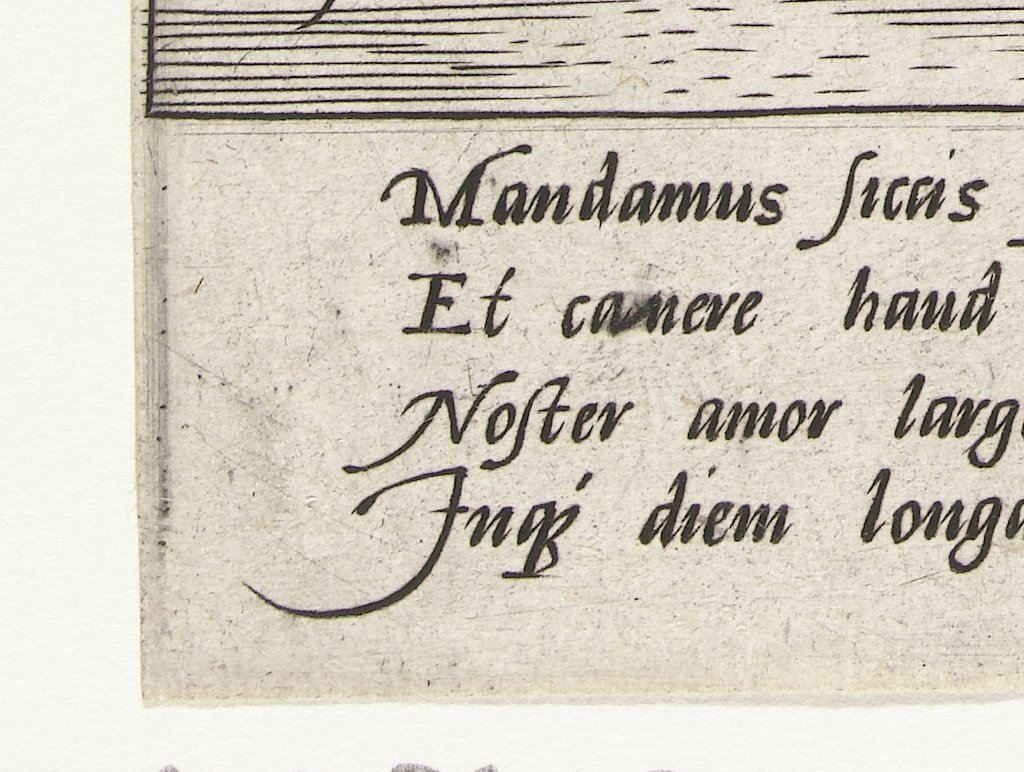 Mandamus ſiccis
Et canere haud
Noſter amor larg
Inq́ꝫ diem long